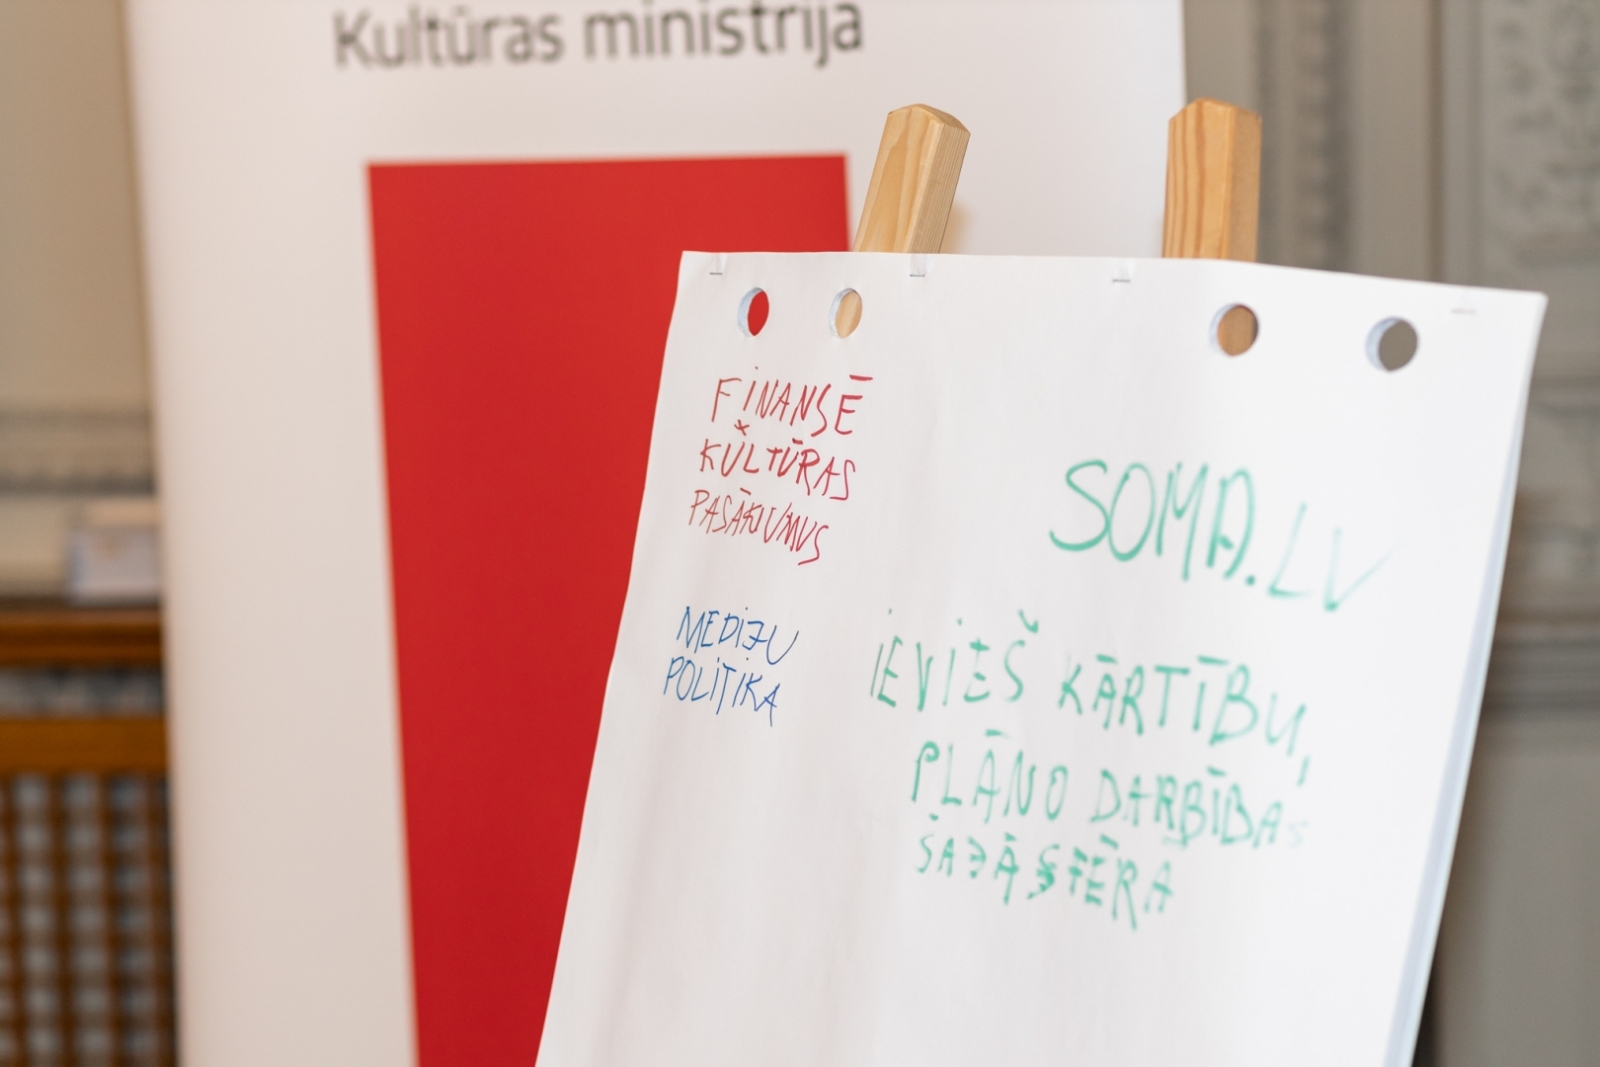 Kultūras ministrija
FINANSĒ
KULTŪRAS
PASĀKUMUS
MEDIJU
POLITIKA
SOMA.LV
IEVIEŠ KĀRTĪBU,
PLĀNO DARBĪBAS
ŠAJĀ SFĒRĀ